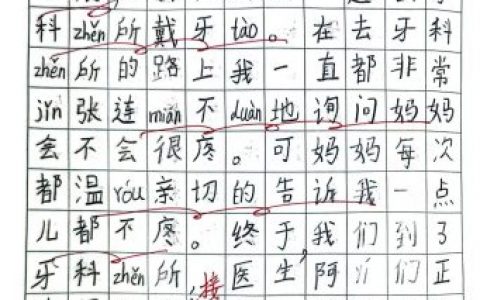 科zhěn所戴牙tào。在去牙科
zhěn所的路上我一直都非常
jǐn张连mián不duàn地询问妈妈
会不会很疼。可妈妈每次
都温róu亲切的告诉我一点
儿都不疼。终于,我们到了
牙科zhěn所,接医生阿们正